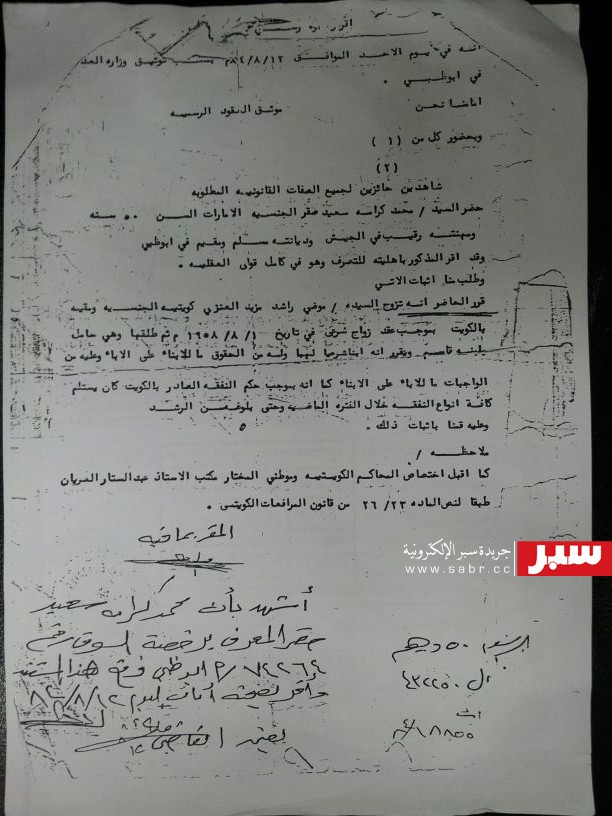 انه في يوم الاحد الموافق ٨٤/٨/١٢م بمكتب توثيق وزاره العدل
في ابوظبي .
امامنا نحن موثق العقود الرسميه
وبحضور كل من (١)
(٢)
شاهدين حائزين لجميع الصفات القانونيه المطلوبه
حضر السيد / محمد كرامه سعيد صقر الجنسيه الامارات السن ٥٠ سنه
ومهنته رقيب في الجيش وديانته مسلم ومقيم في ابوظبي
وقد اقر المذكور باهليته للتصرف وهو في كامل قواه العقليه .
وطلب منا اثبات الاتي
قرر الحاضر انه تزوج السيده / موضي راشد مزيد العنزي كويتيه الجنسيه ومقيمه
بالكويت بموجب عقد زواج شرعي في تاريخ ١ / ٨ / ١٩٥٨ م ثم طلقها وهي حامل
بابنه قاسم ويقرر انه ابنا شرعيا لهما وله من الحقوق ما للابناء على الاباء وعليه من
الواجبات ما للاباء على الابناء كما انه بموجب حكم النفقه الصادر بالكويت كان يستلم
كافة انواع النفقه خلال الفتره الماضيه وحتى بلوغه سن الرشد
وعليه قمنا باثبات ذلك .
ملاحظه /
كما اقبل اختصاص المحاكم الكويتيه وموطني المختار مكتب الاستاذ عبدالستار العريان
طبقا لنص الماده ٢٦/٢٣ من قانون المرافعات الكويتي .
المقر بما فيه
أشهد بأن محمد كرامه سعيد
صقر المعرف برخصة السوق رقم
٧٢٢٦٤ / أبوظبي وقع هذا المستند
وأقر بصحته أمامي اليوم ٨٤/٨/١٢
الرسوم ٥٠ درهم
سبر
جريدة سبر الإلكترونية
www.sabr.cc